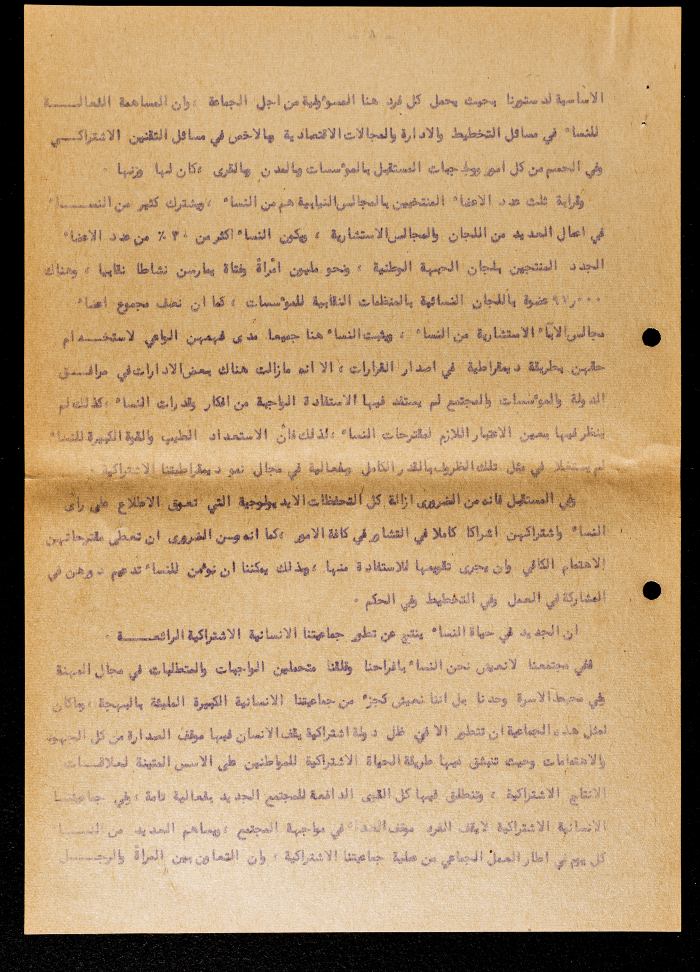 - ٨ -
الاساسية لدستورنا بحيث يحمل كل فرد هنا المسوٴولية من اجل الجماعة ، وان المساهمة الفعالــــة
للنساء في مسائل التخطيط والادارة والمجالات الاقتصادية وبالاخص في مسائل التقنين الاشتراكـــي
وفي الحسم من كل امور وواجبات المستقبل بالموٴسسات وبالمدن وبالقرى ، كان لها وزنها ٠
وقرابة ثلث عدد الاعضاء المنتخبين بالمجالس النيابية هم من النساء ، ويشترك كثير من النســـاء
في اعمال العديد من اللجان والمجالس الاستشارية ، ويكون النساء اكثر من ٣٠ ٪ من عدد الاعضاء
الجدد المنتخبين بلجان الجبهة الوطنية ، ونحو مليون امرأة وفتاة يمارسن نشاطا نقابيا ، وهناك
٩٧٫٠٠٠ عضوة باللجان النسائية بالمنظمات النقابية للموٴسسات ، كما ان نصف مجموع اعضاء
مجالس الآباء الاستشارية من النساء ، ويثبت النساء هنا جميعا مدى فهمهن الواعي لاستخـــدام
حقهن بطريقة ديمقراطية في اصدار القرارات ، الا انه مازالت هناك بعض الادارات في مرافـــق
الدولة والموٴسسات والمجتمع لم يستفد فيها الاستفادة الواجبة من افكار وقدرات النساء ، كذلك لم
ينظر فيها بعين الاعتبار اللازم لمقترحات النساء ، لذلك فان الاستعداد الطيب والقوة الكبيرة للنساء
لم يستغلا في مثل تلك الظروف بالقدر الكامل وبفعالية في مجال نمو ديمقراطيتنا الاشتراكية ٠
وفي المستقبل فانه من الضرورى ازالة كل التحفظات الايديولوجية التي تعوق الاطلاع على رأى
النساء واشتراكهن اشراكا كاملا في التشاور في كافة الامور ، كما انه ومن الضرورى ان تعطى مقترحاتهن
الاهتمام الكافي وان يجرى تقويمها للاستفادة منها ، وبذلك يمكننا ان نوٴمن للنساء تدعيم دورهن في
المشاركة في العمل وفي التخطيط وفي الحكم ٠
ان الجديد في حياة النساء ينتج عن تطور جماعيتنا الانسانية الاشتراكية الرائعـــة ٠
ففي مجتمعنا لانعيش نحن النساء بافراحنا وقلقنا متحملين الواجبات والمتطلبات في مجال المهنة
وفي محيط الاسرة وحدنا بل اننا نعيش كجزء من جماعيتنا الانسانية الكبيرة المليئة بالبهجة ، وماكان
لمثل هذه الجماعية ان تتطور الا في ظل دولة اشتراكية يقف الانسان فيها موقف الصدارة من كل الجهود
والاهتمامات وحيث تنبثق فيها طريقة الحياة الاشتراكية للمواطنين على الاسس المتينة لعلاقـــات
الانتاج الاشتراكية ، وتنطلق فيها كل القوى الدافعة للمجتمع الجديد بفعالية تامة ، وفي جماعيتنـا
الانسانية الاشتراكية لايقف الفرد موقف العداء في مواجهة المجتمع ، ويساهم العديد من النســـا
كل يوم في اطار العمل الجماعي من جماعيتنا الاشتراكية ، وان التعاون بين المرأة والرجـــل